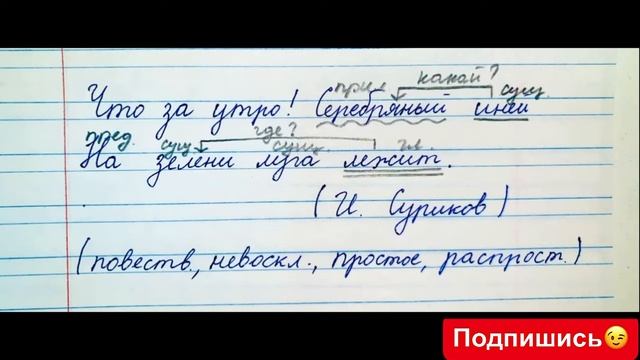 прил. какой? сущ.
Что за утро! Серебряный иней
пред. сущ. где? сущ. гл.
На зелени луга лежит.
(И. Суриков)
(повеств., невоскл., простое, распрост.)
Подпишись